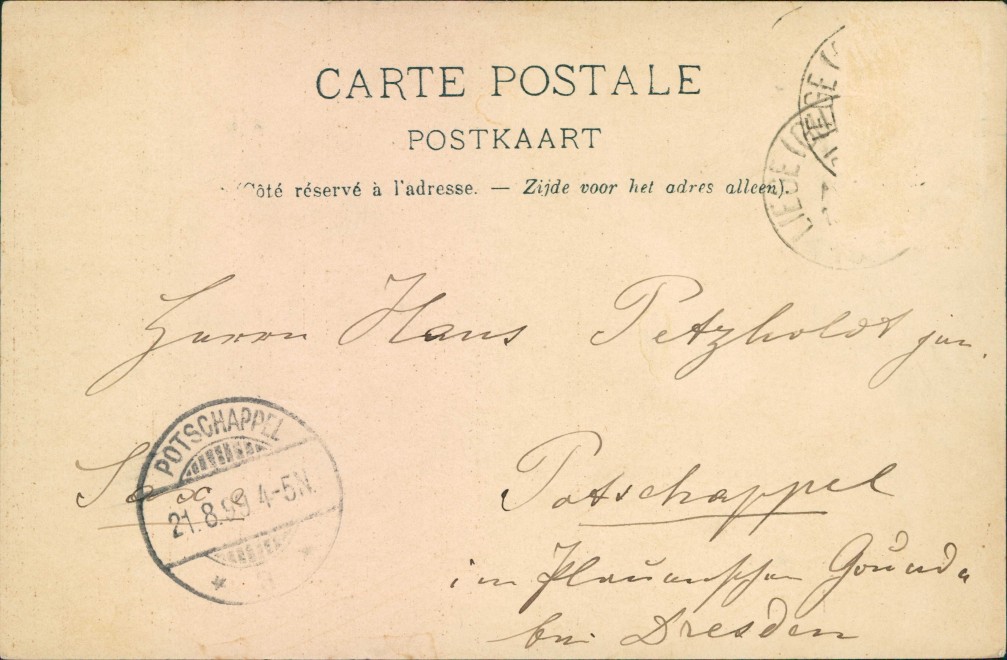 CARTE POSTALE
POSTKAART
(Côté réservé à l'adresse. — Zijde voor het adres alleen).
LIEGE (
LIEGE (
Herrn Hans Petzholdt jun.
POTSCHAPPEL
21.8.99 4-5N.
Potschappel
im Plauenschen Grunde
bei Dresden